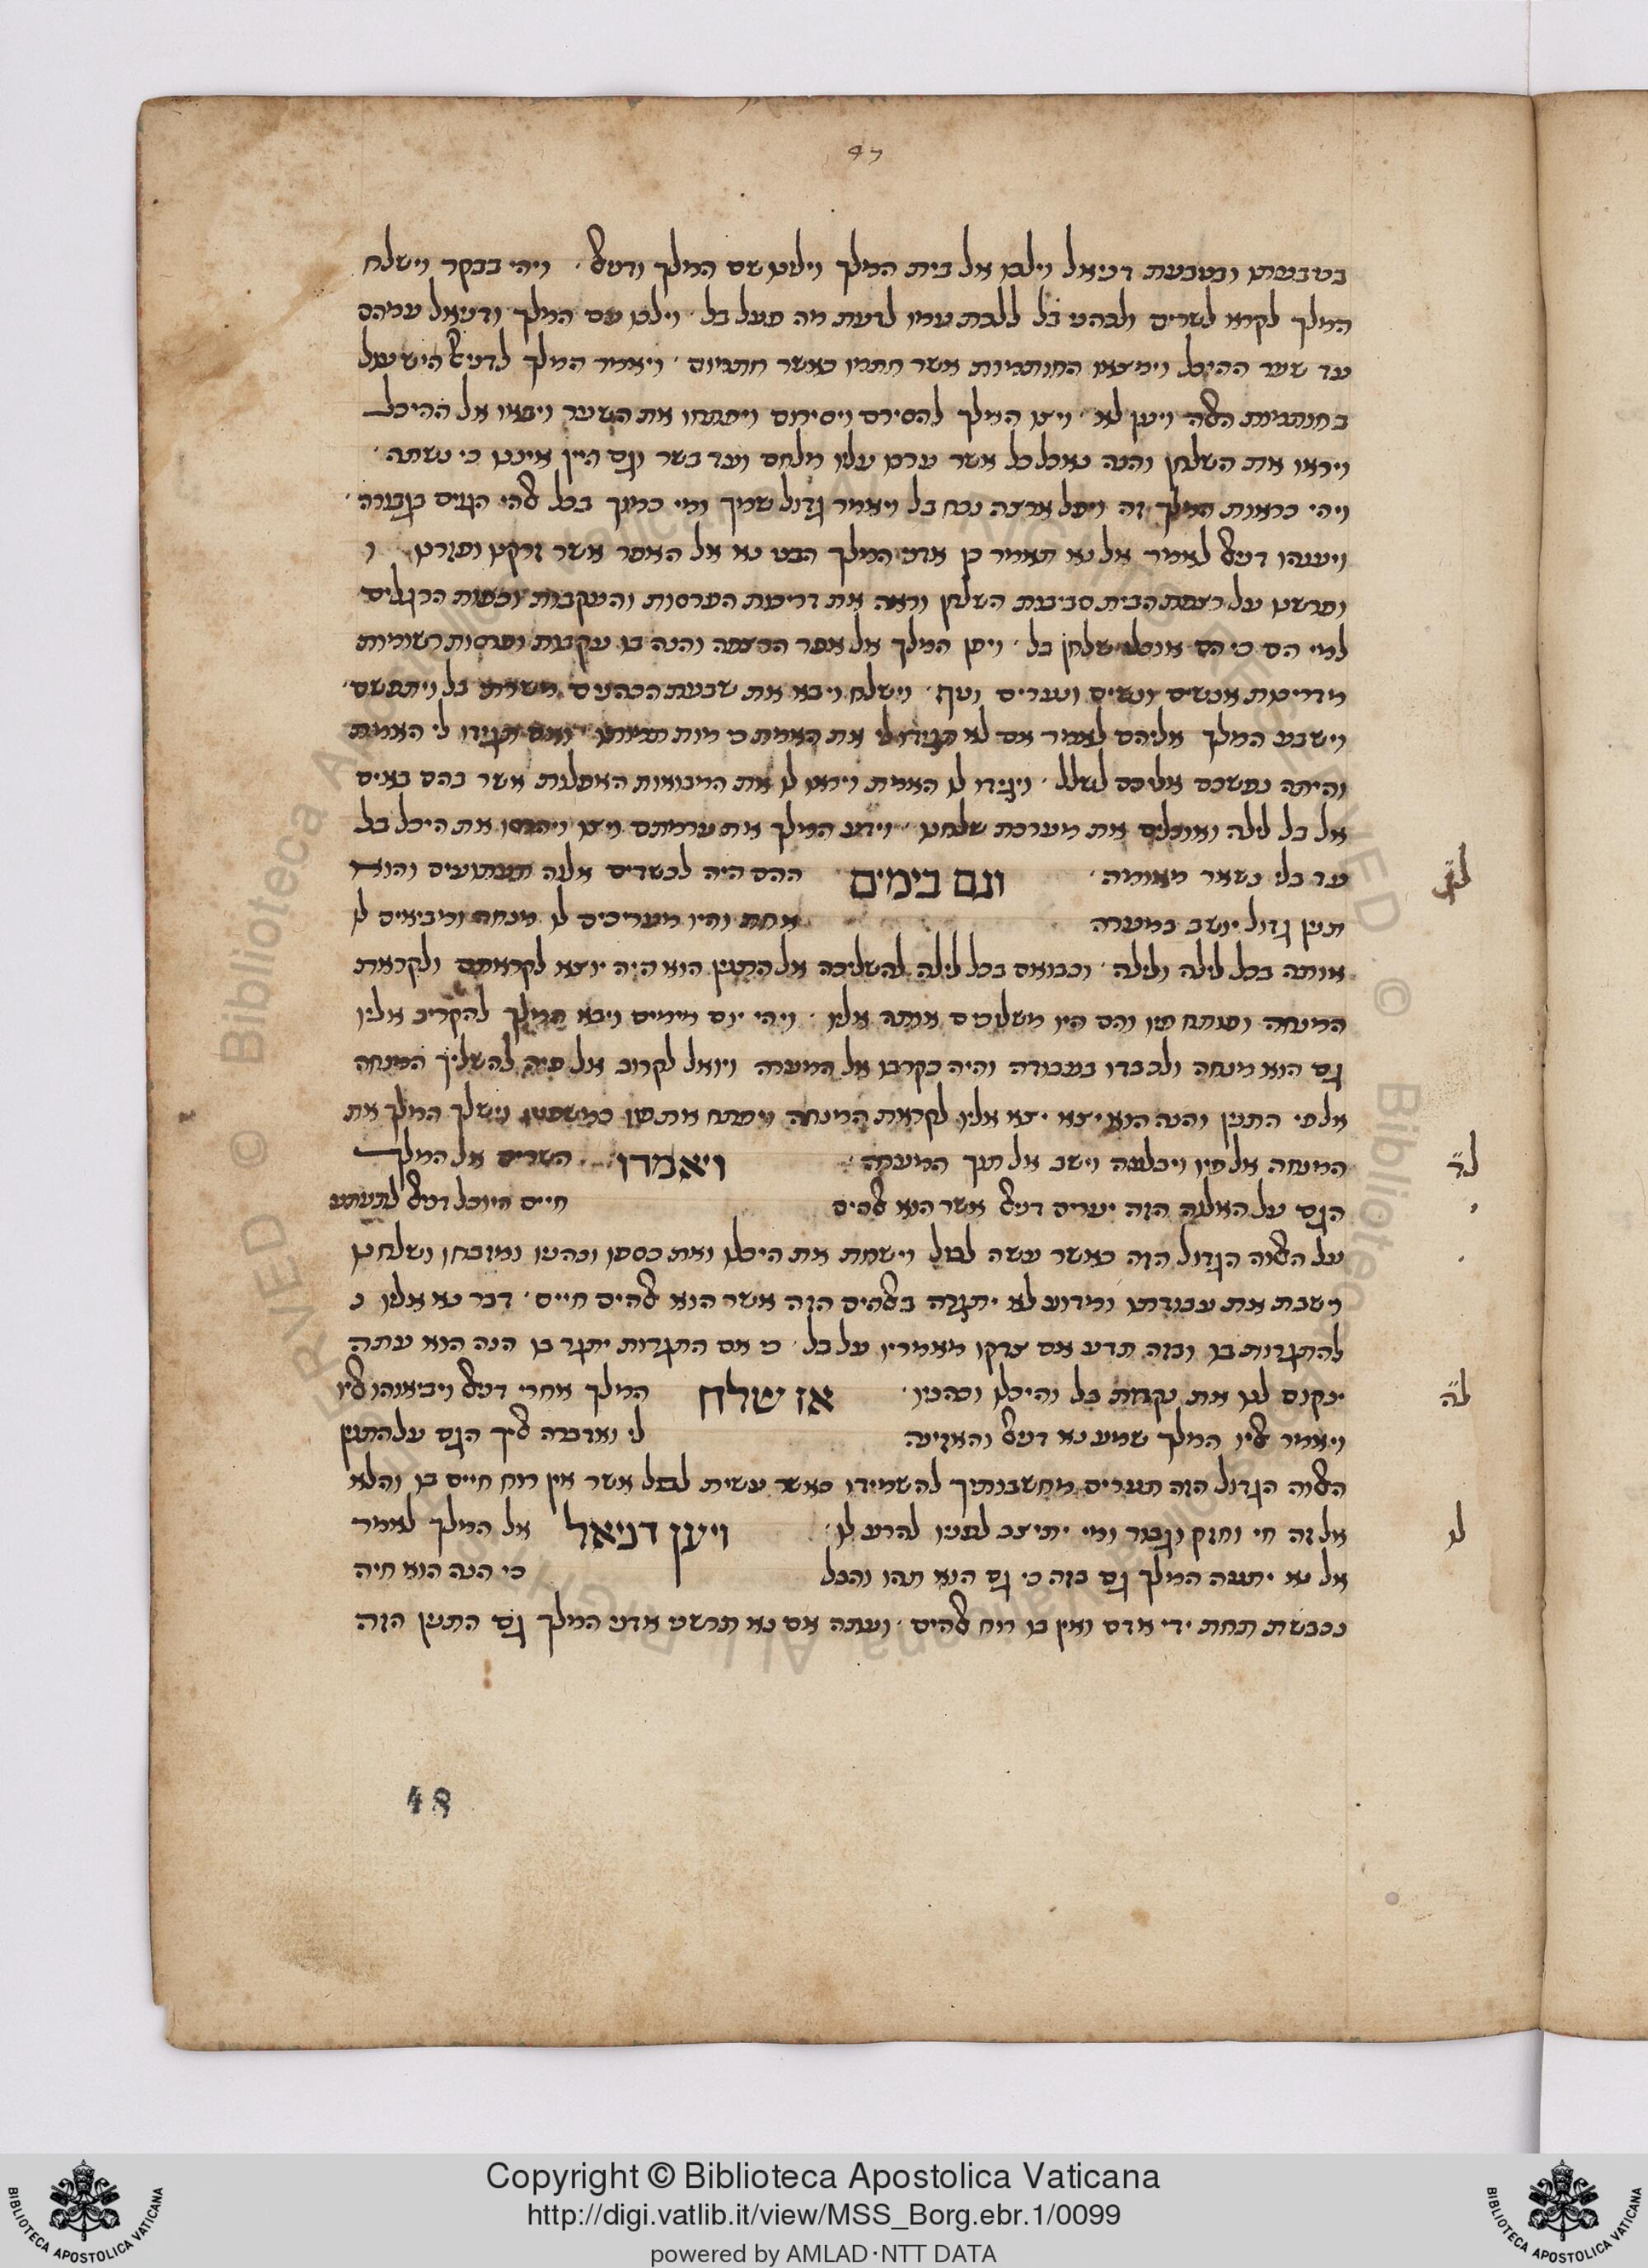 47
בטבעתו ובטבעת דניאל וילכו אל בית המלך וילינו שם המלך ודניאל ויהי בבקר וישלח
המלך לקרא לשרים ולכהני בל ללכת עמו לדעת מה פעל בל וילכו עם המלך ודניאל עמהם
עד שער ההיכל וימצאו החותמיות אשר חתמו כאשר חתמום ויאמר המלך לדניאל היש על
בחותמיות האלה ויען לא ויצו המלך להסירם ויסירום ויפתחו את השער ויבאו אל ההיכל
ויראו את השלחן והנה נאכל כל אשר ערכו עליו מלחם ועד בשר וגם היין איננו כי נשתה
ויהי כראות המלך זה ויפל ארצה נכח בל ויאמר גדול שמך ומי כמוך בכל אלהי הגוים בגבורה
ויענהו דניאל לאמר אל נא תאמר כן אדני המלך הבט נא אל האפר אשר זרקנו ופזרנו ו
ופרשנו על רצפת הבית סביבות השלחן וראה את דריכות הפרסות והעקבות וכפות הרגלים
למי הם כי הם אוכלי שלחן בל ויפן המלך אל אפר הרצפה והנה בו עקבות ופרסות רשומות
מדריכות אנשים ונשים ונערים וטף וישלח ויבא את שבעת הכהנים משרתי בל ויתפשם
וישבע המלך אליהם לאמר אם לא תגידו לי את האמת כי מות תמותו ואם תגידו לי האמת
והיתה נפשכם אליכם לשלל ויגידו לו האמת ויראו לו את המבואות האפלות אשר בהם באים
אל בל לילה ואוכלים את מערכת שלחנו וידע המלך את ערמתם ויצו ויהרסו את היכל בל
עד בלי נשאר מאומה וגם בימים ההם היה לכשדים אלוה תעתועים והוא
לג
תנין גדול יושב במערה אחת והיו מעריכים לו מנחה ומביאים לו
אותה בכל לילה ולילה ובבואם בכל לילה להשליכה אל התנין הוא היה יוצא לקראתם ולקראת
המנחה ופותח פיו והם היו משליכים אותה אליו ויהי יום מימים ויבא המלך להקריב אליו
גם הוא מנחה ולכבדו בעבודה והיה בקרבו אל המערה ויואל לקרוב אל פיה להשליך המנחה
אל פי התנין והנה הוא יצא יצא אליו לקראת המנחה ויפתח את פיו כמשפטו וישלך המלך את
המנחה אל פיו ויבלענה וישב אל תוך המערה ויאמרו השרים אל המלך
לד
הגם על האלוה הזה יערים דניאל אשר הוא אלהים חיים היוכל דניאל לתעתע
על האלוה הגדול הזה כאשר עשה לבל וישחת את היכלו ואת כספו וכהניו ומזבחו ושלחנו
וישבת את עבודתו ומדוע לא יתגרה באלהים הזה אשר הוא אלהים חיים דבר נא אליו כ
להתגרות בו ובזה תדע אם צדקו מאמריו על בל כי אם התגרות יתגר בו הנה הוא עתה
ינקום לנו את נקמת בל והיכלו וכהניו אז שלח המלך אחרי דניאל ויביאוהו אליו
לה
ויאמר אליו המלך שמע נא דניאל והאזינה לי ואדברה אליך הגם על התנין
האלוה הגדול הזה תערים מחשבותיך להשמידו כאשר עשית לבל אשר אין רוח חיים בו והלא
אל זה חי וחזק וגבור ומי יתיצב לפניו להרע לו ויען דניאל אל המלך לאמר
לו
אל נא יתעה המלך גם בזה כי גם הוא תהו והבל כי הנה הוא חיה
נכבשת תחת ידי אדם ואין בו רוח אלהים ועתה אם נא תרשני אדני המלך גם התנין הזה
48
Copyright © Biblioteca Apostolica Vaticana
http://digi.vatlib.it/view/MSS_Borg.ebr.1/0099
powered by AMLAD·NTT DATA